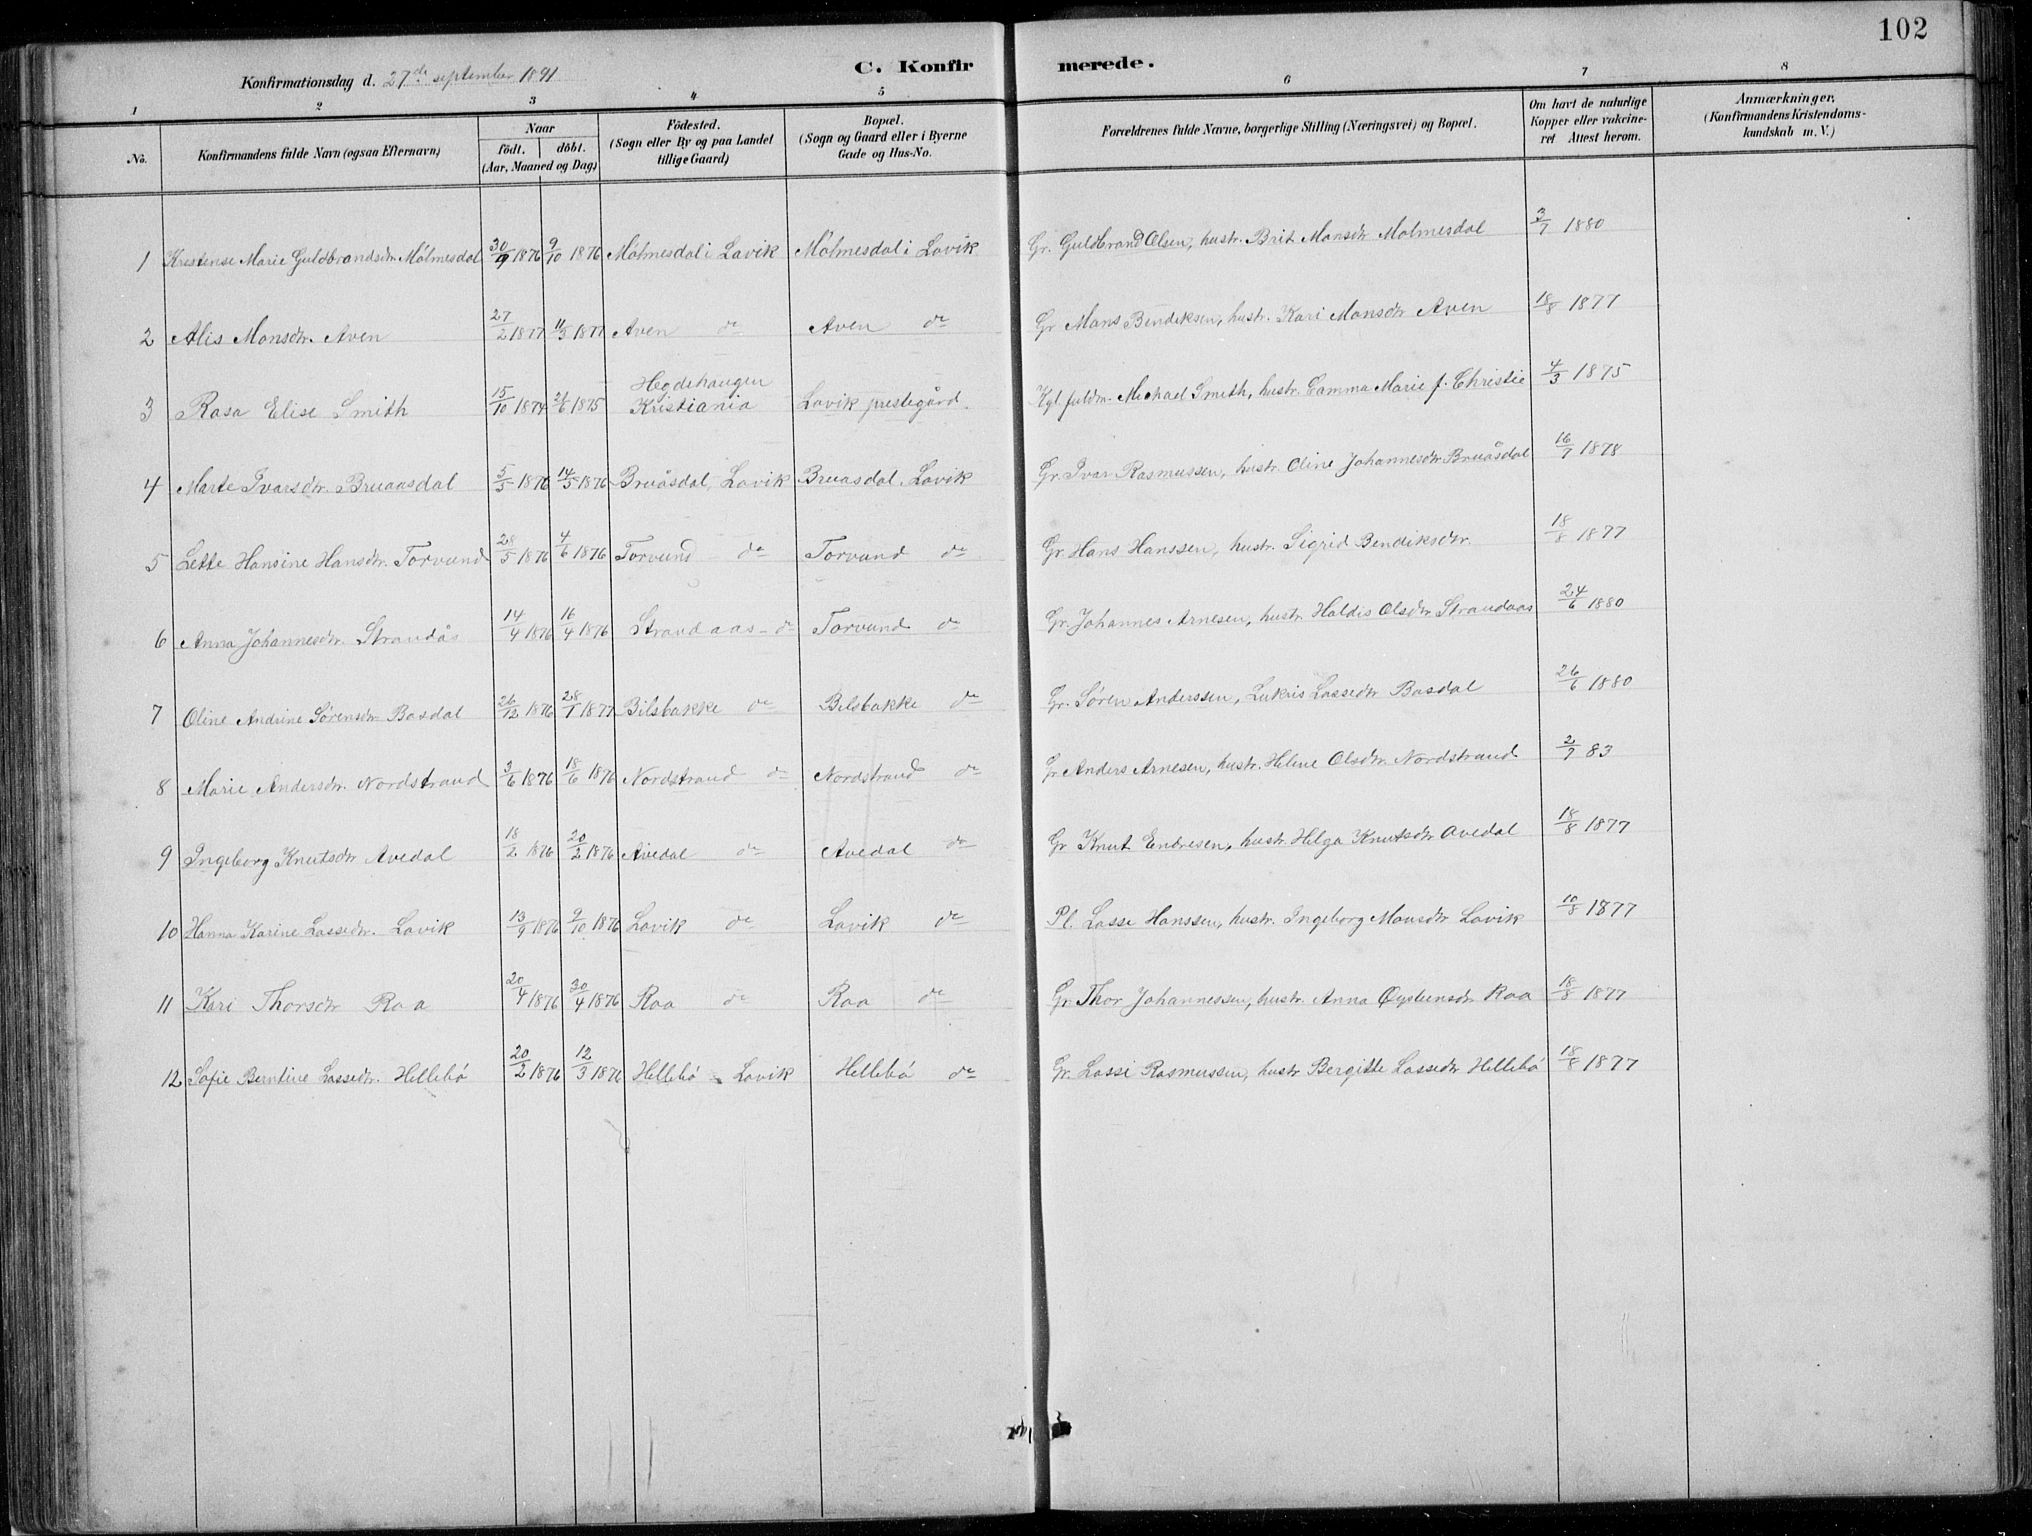 102
Konfirmationsdag d. 27de september 1891
C. Konfirmerede.
1 2 3 4 5 6 7 8
No.
Konfirmandens fulde Navn (ogsaa Efternavn)
Naar
födt. döbt.
(Aar, Maaned og Dag)
Födested.
(Sogn eller By og paa Landet
tillige Gaard)
Bopæl.
(Sogn og Gaard eller i Byerne
Gade og Hus-No.
Forældrenes fulde Navne, borgerlige Stilling (Næringsvei) og Bopæl.
Om havt de naturlige
Kopper eller vakcine-
ret Attest herom.
Anmærkninger,
(Konfirmandens Kristendoms-
kundskab m. V.)
1 Kristense Marie Guldbrandsdtr. Mólmesdal 30/9 1876 9/10 1876 Mólmesdal i Lavik Mólmesdal i Lavik Gr. Guldbrand Olsen, hustr. Brit Monsdtr Molmesdal 3/7 1880
2 Alis Monsdtr. Aven 27/2 1877 11/3 1877 Aven do Aven do Gr Mons Bendiksen, hustr. Kari Monsdtr Aven 18/8 1877
3 Rasa Elise Smith 15/10 1874 24/6 1875 Hegdehaugen Kristiania Lavik prestegård. Kgl. fuldm. Michael Smith, hustr. Camma Marie f. Christie 4/3 1875
4 Marte Ivarsdtr. Bruaasdal 5/5 1876 14/5 1876 Bruåsdal, Lavik Bruasdal, Lavik Gr. Ivar Rasmussen, hustr. Oline Johannesdtr Bruåsdal 16/7 1878
5 Lette Hansine Hansdtr. Torvund 28/5 1876 4/6 1876 Torvund do Torvund do Gr. Hans Hanssen, hustr. Sigrid Bendiksdtr. 18/8 1877
6 Anna Johannesdtr. Strandås 14/4 1876 16/4 1876 Strandaas - do Torvund do Gr. Johannes Arnesen, hustr. Haldis Olsdtr Strandaas 24/6 1880
7 Oline Andrine Sørensdtr Basdal 26/12 1876 28/1 1877 Bilsbakke do Bilsbakke do Gr. Søren Anderssen, Lukris Lassedtr Basdal 26/6 1880
8 Marie Andersdtr. Nordstrand 3/6 1876 18/6 1876 Nordstrand do Nordstrand do Gr Anders Arnesen, hustr. Heline Olsdtr. Nordstrand 2/7 83
9 Ingeborg Knutsdtr Avedal 18/2 1876 20/2 1876 Avedal do Avedal do Gr Knut Endresen, hustr. Helga Knutsdtr Avedal 18/8 1877
10 Hanna Karine Lassedtr. Lavik 13/9 1876 9/10 1876 Lavik do Lavik do Pl. Lasse Hanssen, hustr. Ingeborg Monsdtr Lavik 10/8 1877
11 Kari Thorsdtr Raa 20/4 1876 30/4 1876 Raa do Raa do Gr. Thor Johannessen, hustr. Anna Øysteinsdtr Raa 18/8 1877
12 Sofie Berntine Lassedtr. Hellebó 20/2 1876 12/3 1876 Hellebó Lavik Hellebó do Gr. Lassi Rasmussen, hustr Bergitte Lassedtr Hellebó 18/8 1877